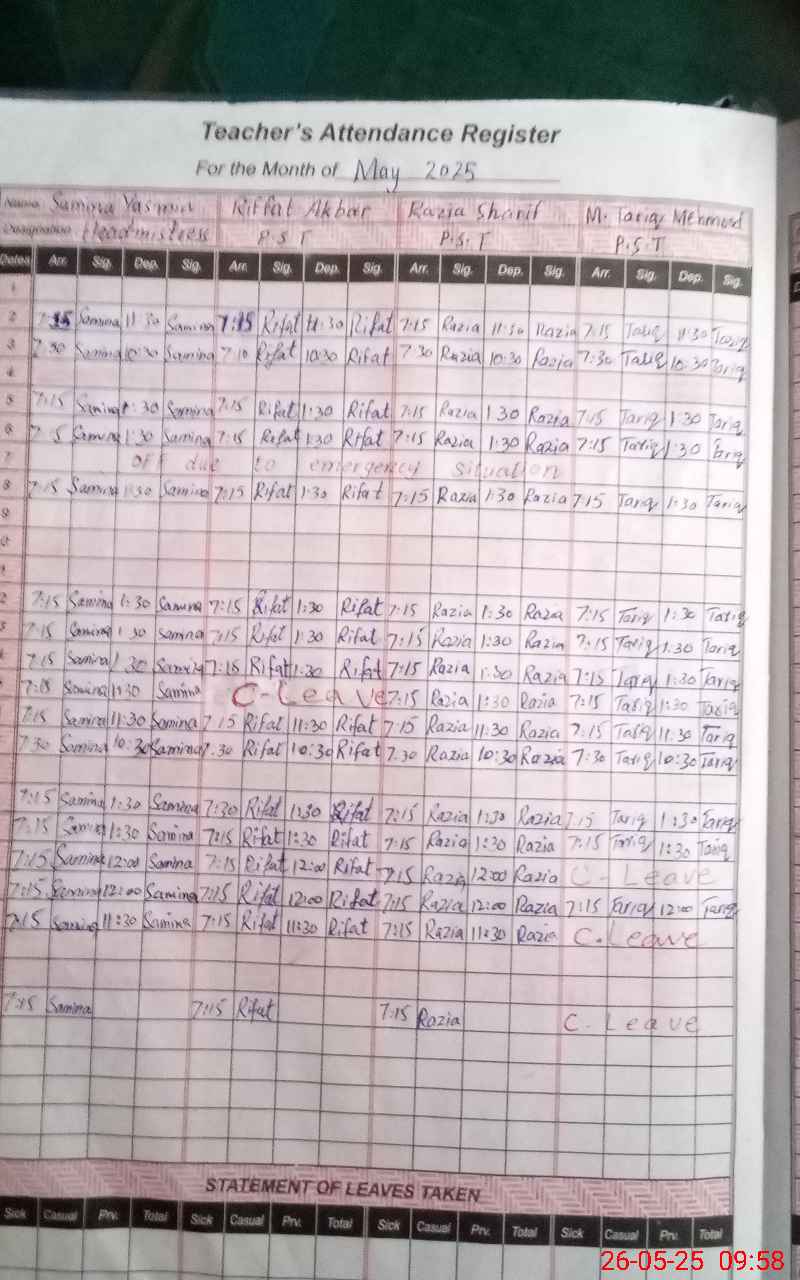 Teacher's Attendance Register
For the Month of May 2025
Name Samina Yasmin Riffat Akbar Razia Sharif M. Tariq Mehmood
Designation Headmistress P.S.T P.S.T P.S.T
Dates Arr. Sig. Dep. Sig. Arr. Sig. Dep. Sig. Arr. Sig. Dep. Sig. Arr. Sig. Dep. Sig.
1
2 7:15 Samina 11:30 Samina 7:15 Rifat 11:30 Rifat 7:15 Razia 11:30 Razia 7:15 Tariq 11:30 Tariq
3 7:30 Samina 10:30 Samina 7:10 Rifat 10:30 Rifat 7:30 Razia 10:30 Razia 7:30 Tariq 10:30 Tariq
4
5 7:15 Samina 1:30 Samina 7:15 Rifat 1:30 Rifat 7:15 Razia 1:30 Razia 7:15 Tariq 1:30 Tariq
6 7:15 Samina 1:30 Samina 7:15 Rifat 1:30 Rifat 7:15 Razia 1:30 Razia 7:15 Tariq 1:30 Tariq
7 OFF due to emergency situation
8 7:15 Samina 1:30 Samina 7:15 Rifat 1:30 Rifat 7:15 Razia 1:30 Razia 7:15 Tariq 1:30 Tariq
9
0
1
2 7:15 Samina 1:30 Samina 7:15 Rifat 1:30 Rifat 7:15 Razia 1:30 Razia 7:15 Tariq 1:30 Tariq
3 7:15 Samina 1:30 Samina 7:15 Rifat 1:30 Rifat 7:15 Razia 1:30 Razia 7:15 Tariq 1:30 Tariq
7:15 Samina 1:30 Samina 7:15 Rifat 1:30 Rifat 7:15 Razia 1:30 Razia 7:15 Tariq 1:30 Tariq
7:15 Samina 1:30 Samina C-Leave 7:15 Razia 1:30 Razia 7:15 Tariq 1:30 Tariq
7:15 Samina 11:30 Samina 7:15 Rifat 11:30 Rifat 7:15 Razia 11:30 Razia 7:15 Tariq 11:30 Tariq
7:30 Samina 10:30 Samina 7:30 Rifat 10:30 Rifat 7:30 Razia 10:30 Razia 7:30 Tariq 10:30 Tariq
7:15 Samina 1:30 Samina 7:30 Rifat 1:30 Rifat 7:15 Razia 1:30 Razia 7:15 Tariq 1:30 Tariq
7:15 Samina 1:30 Samina 7:15 Rifat 1:30 Rifat 7:15 Razia 1:30 Razia 7:15 Tariq 1:30 Tariq
7:15 Samina 12:00 Samina 7:15 Rifat 12:00 Rifat 7:15 Razia 12:00 Razia C-Leave
7:15 Samina 12:00 Samina 7:15 Rifat 12:00 Rifat 7:15 Razia 12:00 Razia 7:15 Tariq 12:00 Tariq
7:15 Samina 11:30 Samina 7:15 Rifat 11:30 Rifat 7:15 Razia 11:30 Razia C.Leave
7:15 Samina 7:15 Rifat 7:15 Razia C.Leave
STATEMENT OF LEAVES TAKEN
Sick Casual Prv. Total Sick Casual Prv. Total Sick Casual Prv. Total Sick Casual Prv. Total
26-05-25 09:58